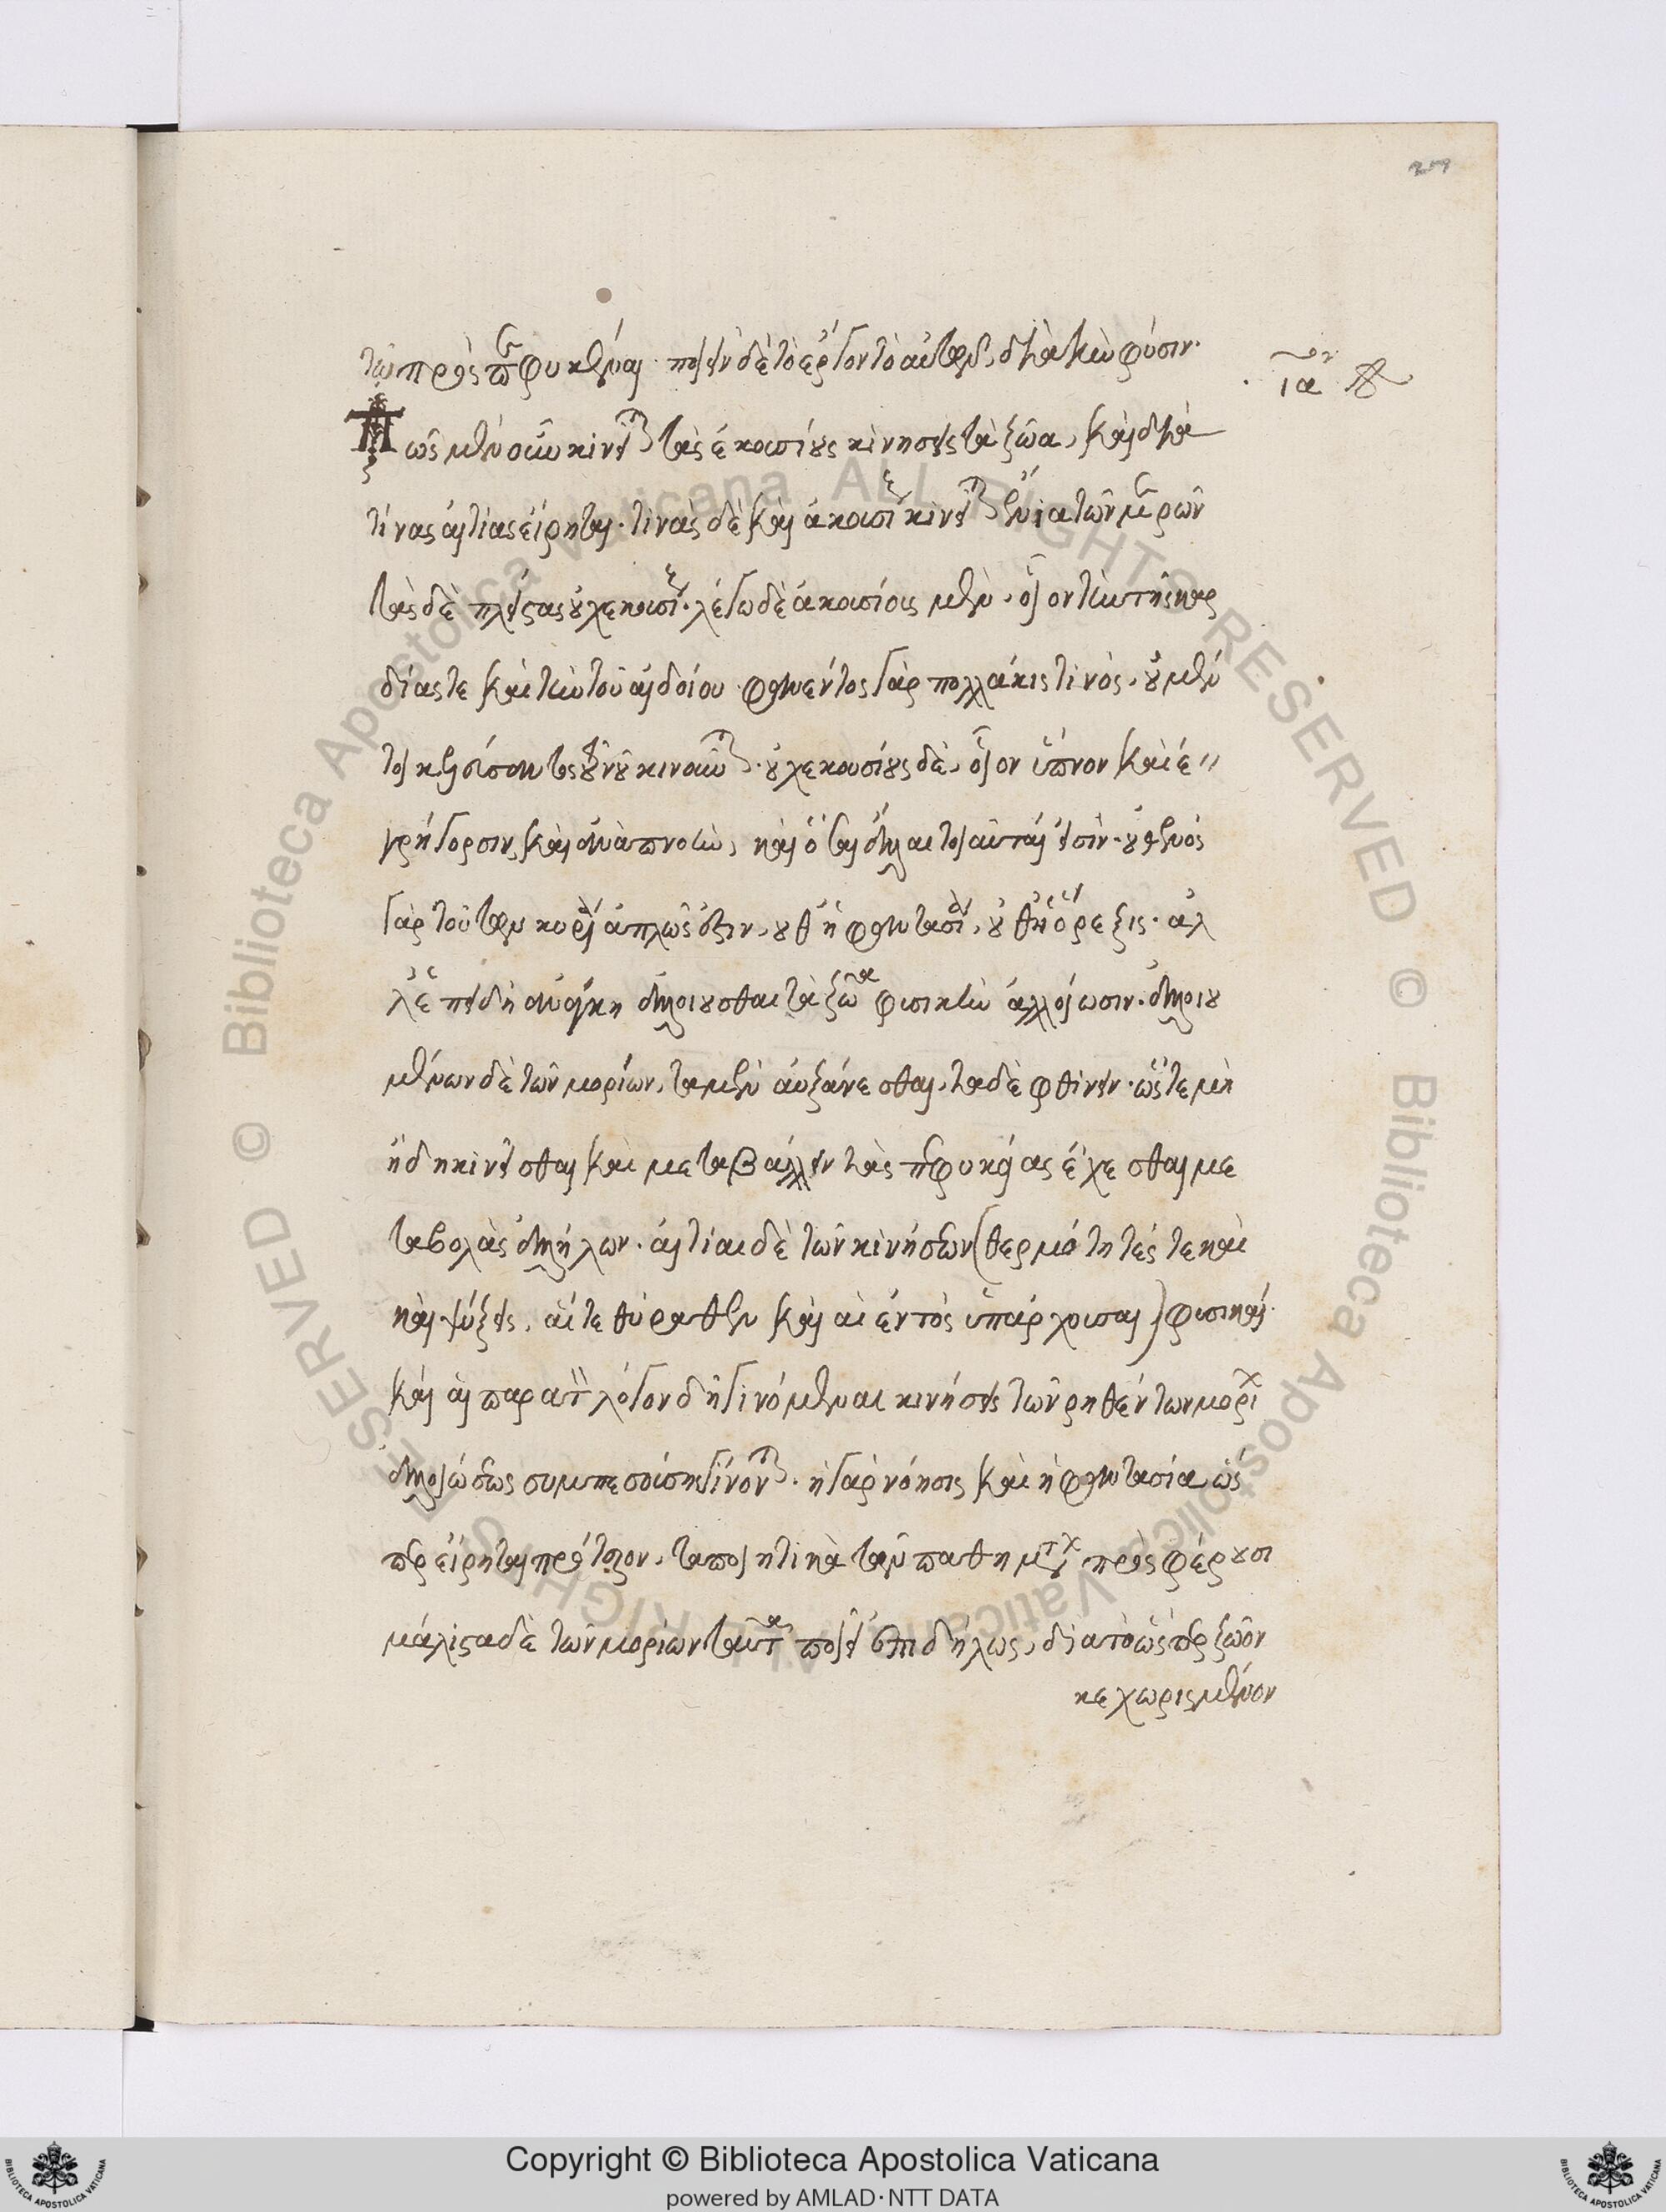 259
τῷ προσπεφυκέναι· ποιεῖν δὲ τὸ ἔργον τὸ αὐτῶν, διὰ τὴν φύσιν·
ια ον
Πῶς μὲν οὖν κινεῖται τὰς ἑκουσίους κινήσεις τὰ ζῶα, καὶ διὰ
τίνας αἰτίας εἴρηται· τινὰς δὲ καὶ ἀκουσίους κινεῖται ἔνια τῶν μερῶν
τὰς δὲ πλείστας οὐχ ἑκουσίους· λέγω δὲ ἀκουσίους μὲν, οἷον τὴν τῆς καρ
δίας τε καὶ τὴν τοῦ αἰδοίου φανέντος γὰρ πολλάκις τινὸς, οὐ μέν
τοι κελεύσαντος τοῦ νοῦ κινοῦνται· οὐχ ἑκουσίους δὲ, οἷον ὕπνον καὶ ἐ
γρήγορσιν, καὶ ἀναπνοὴν, καὶ ὅσαι ἄλλαι τοιαῦταί εἰσίν· οὐθενὸς
γὰρ τούτων κυρία ἁπλῶς ἐστιν, οὔθ' ἡ φαντασία, οὔθ' ἡ ὄρεξις· ἀλ
λ' ἐπειδὴ ἀνάγκη ἀλλοιοῦσθαι τὰ ζῶα φυσικὴν ἀλλοίωσιν· ἀλλοιου
μένων δὲ τῶν μορίων, τὰ μὲν αὐξάνεσθαι, τὰ δὲ φθίνειν· ὥστε μὴ
ἤδη κινεῖσθαι καὶ μεταβάλλειν τὰς πεφυκυίας ἔχεσθαι με
ταβολὰς ἀλλήλων· αἰτίαι δὲ τῶν κινήσεων (θερμότητές τε καὶ
καὶ ψύξεις, αἵ τε θύραθεν καὶ αἱ ἐντὸς ὑπάρχουσαι) φυσικαί·
καὶ αἱ παρὰ τὸν λόγον δὴ γινόμεναι κινήσεις τῶν ῥηθέντων μορίων
ἀλλοιώσεως συμπεσούσης γίνονται· ἡ γὰρ νόησις καὶ ἡ φαντασία ὡς
περ εἴρηται πρότερον, τὰ ποιητικὰ τῶν παθημάτων προσφέρουσι
μάλιστα δὲ τῶν μορίων ταῦτα ποιεῖ ἐπιδήλως, διὰ τὸ ὥσπερ ζῶον
κεχωρισμένον
Copyright © Biblioteca Apostolica Vaticana
powered by AMLAD·NTT DATA